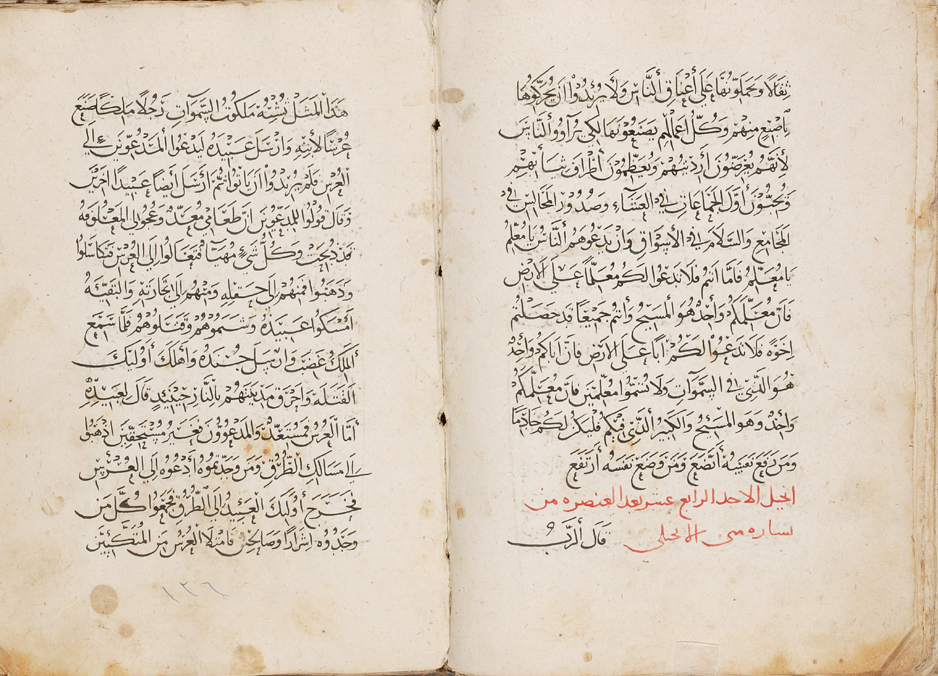 ثقالًا ويحملونها على أعناق ألناس ولا يريدوا أن يحركوها
باصبع منهم وكل اعمالهم يصنعونها لكي يرآوو ألناس
لأنهم يعرضون أرديتهم ويعظمون أطراف ثيابهم
ويحبون أول الجماعات في العشاء وصدور المجالس في
المجامع والسلام في الأسواق وان يدعوهم ألناس يا معلم
يا معلم فاما أنتم فلا تدعوا لكم معلمًا على الارض
فان معلمكم وأحد هو المسيح وأنتم جميعًا قد حصلتم
اخوة فلا تدعوا لكم ابًا على الارض فان اباكم وأحد
هو الذي في السموات ولا تسموا معلمين فان معلمكم
وأحد وهو المسيح والكبير ألذي فيكم فليكن لكم خادمًا
ومن رفع نفسه أتضع ومن وضع نفسه أرتفع
انجيل الاحد الرابع عشر بعد العنصره من
بشاره متى الانجيلي قال ألرب
هذا المثل تشبه ملكوت السموات رجلًا ملكًا صنع
عرسًا لأبنه وارسل عبيده ليدعوا المدعوين الي
العرس فلم يريدوا أن ياتوا ثم أرسل أيضًا عبيدًا اخرين
وقال قولوا للمدعوين ان طعامي معد وعجولي المعلوفه
قد ذبحت وكل شيء مهيأ فتعالوا إلى العرس فتكاسلوا
وذهبوا فمنهم الى حقله ومنهم الى تجارته والبقيه
امسكوا عبيده وشتموهم وقتلوهم فلما سمع
الملك غضب وارسل جنده وأهلك أوليك
القتله واحرق مدينتهم بالنار حينيذٍ قال لعبيده
أما ألعرس فمستعد والمدعوون فغير مستحقين أذهبوا
إلى مسالك الطروق ومن وجدتموه أدعوه إلى العرس
فخرج أوليك العبيد إلى الطروق فجمعوا كل من
وجدوه اشرارًا وصالحين فامتلا العرس من المتكيين
١٢٦